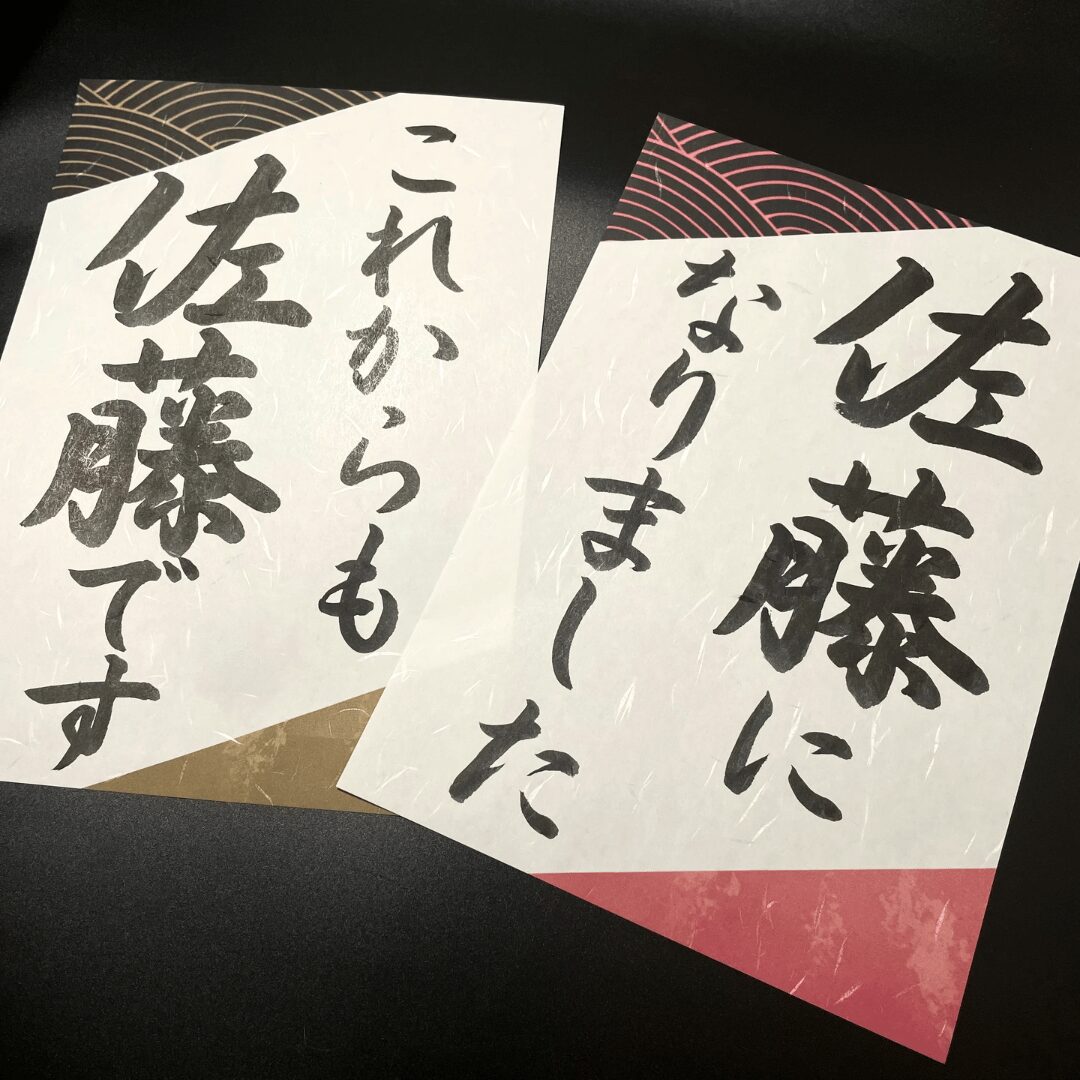 これからも
佐藤です
佐藤に
なりました